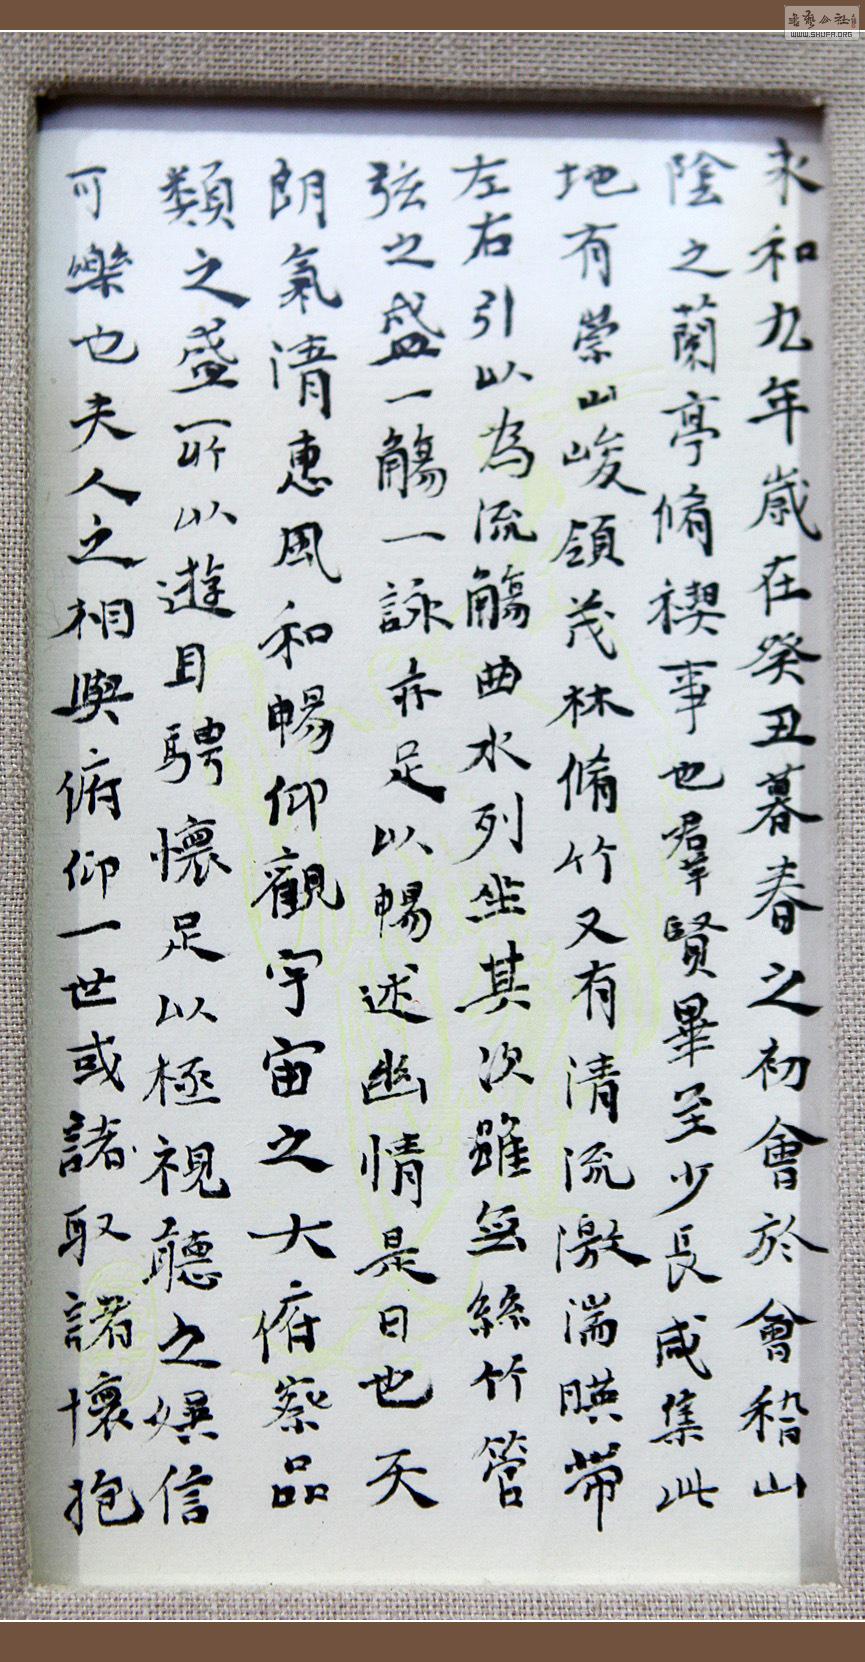 永和九年歲在癸丑暮春之初會於會稽山
陰之蘭亭脩禊事也羣賢畢至少長咸集此
地有崇山峻領茂林脩竹又有清流激湍暎帶
左右引以為流觴曲水列坐其次雖無絲竹管
弦之盛一觴一詠亦足以暢述幽情是日也天
朗氣清惠風和暢仰觀宇宙之大俯察品
類之盛所以遊目騁懷足以極視聽之娛信
可樂也夫人之相與俯仰一世或諸取諸懷抱
WWW.SHUFA.ORG